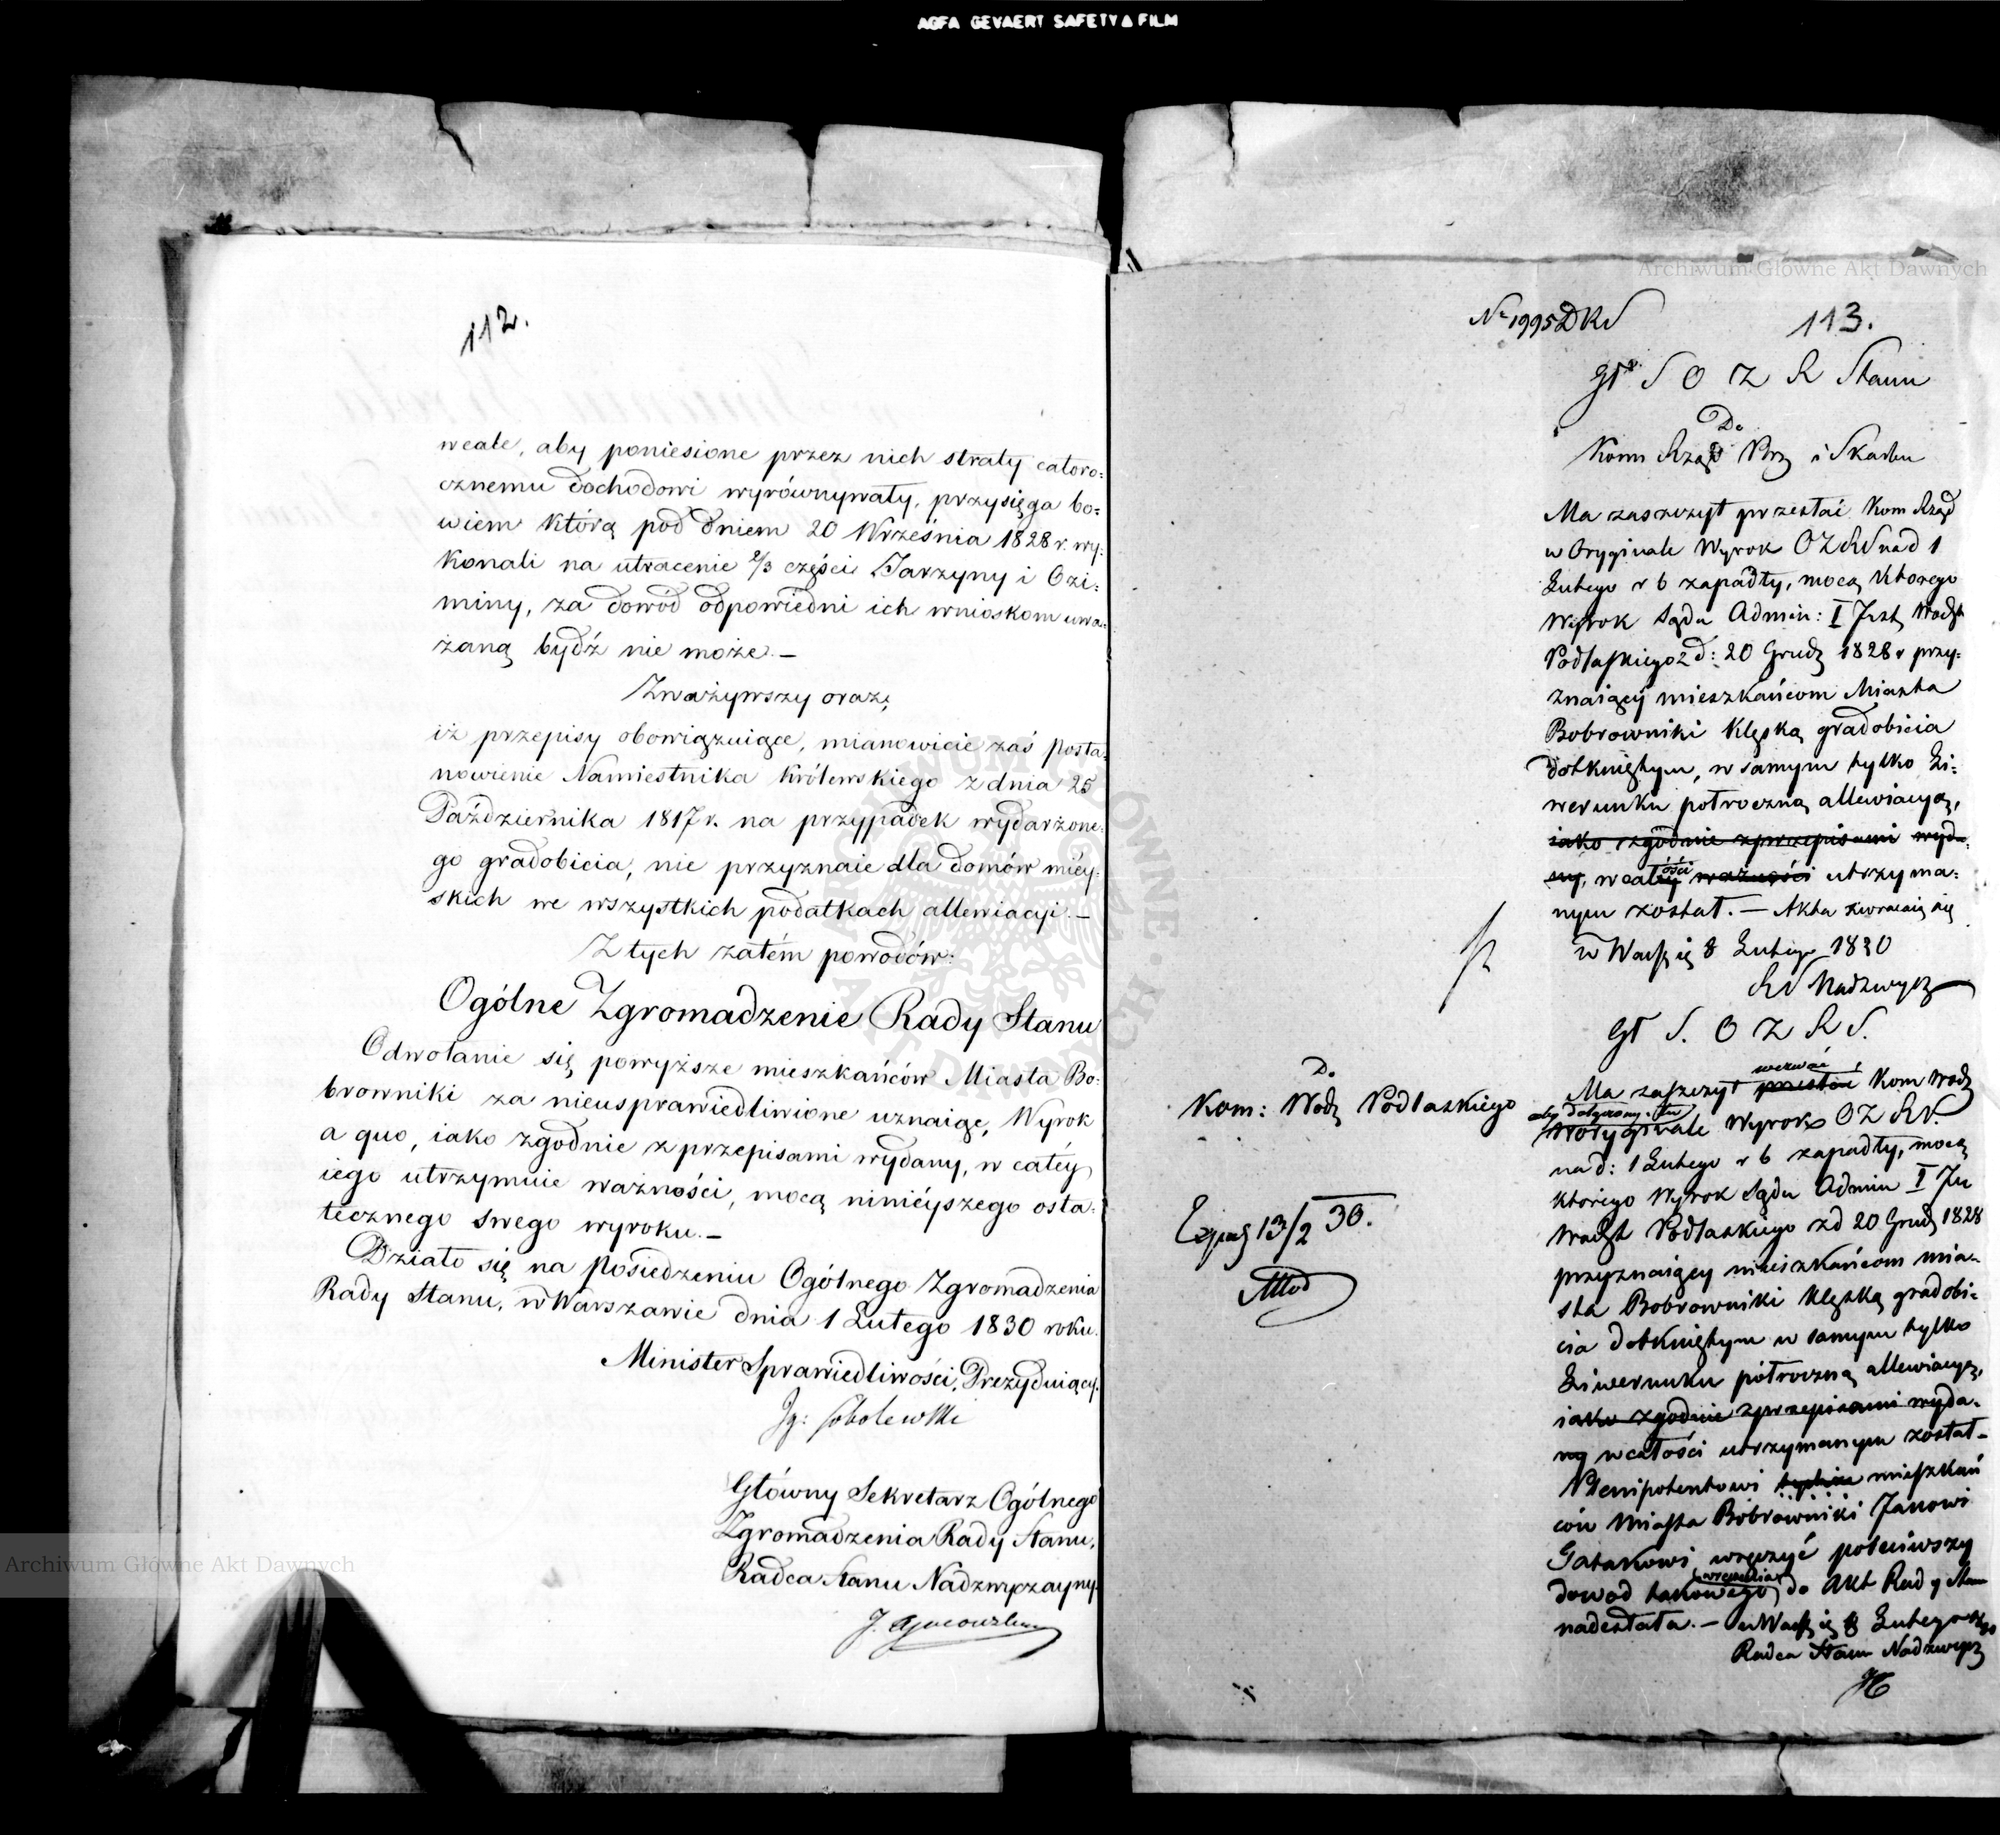 AGFA GEVAERT SAFETY FILM
112.
weale, aby poniesione przez nich straty całoro:
cznemu dochodowi wyrównywały, przysięga bo:
wiem którą pod dniem 20 Września 1828 r. wy:
konali na utracenie 2/3 części Jarzyny i Ozi:
miny, za dowód odpowiedni ich wnioskom uwa:
żaną bydź nie może. —
Zważywszy oraz,
iż przepisy obowiązuiące, mianowicie zaś posta:
nowienie Namiestnika Królewskiego z dnia 25
Października 1817 r. na przypadek wydarzone:
go gradobicia, nie przyznaie dla domów miey:
skich we wszystkich podatkach allewiacji. —
Z tych zatém powodów:
Ogólne Zgromadzenie Rady Stanu
Odwołanie się powyższe mieszkańców Miasta Bo:
browniki za nieusprawiedliwione uznaiąc, Wyrok
a quo, iako zgodnie z przepisami wydany, w całey
iego utrzymuie ważności, mocą ninieyszego osta:
tecznego swego wyroku. —
Działo się na Posiedzeniu Ogólnego Zgromadzenia
Rady Stanu, w Warszawie dnia 1 Lutego 1830 roku.
Minister Sprawiedliwości, Prezyduiący.
Ig: Sobolewski
Główny Sekretarz Ogólnego
Zgromadzenia Rady Stanu,
Radca Stanu Nadzwyczayny.
Archiwum Główne Akt Dawnych
Archiwum Główne Akt Dawnych
ARCHIWUM GŁÓWNE AKT DAWNYCH
No 1995 DRS
113.
Gł S O Z R Stanu
Do
Kom Rząd Prz i Skarbu
Ma zaszczyt przesłać Kom Rząd
w Oryginale Wyrok OZRS nad 1
Lutego r b zapadły, mocą którego
Wyrok Sądu Admin: I Inst Wodzt
Podlaskiego z d: 20 Grud 1828 r przy:
znaiący mieszkańcom Miasta
Bobrowniki klęską gradobicia
dotkniętym, w samym tylko Li:
werunku półroczną allewiacyą,
iako zgodnie z przepisami wyda:
ny, w całey ości ważności utrzyma:
nym został. — Akta zwracaią się
w Warsz ie 8 Lutego 1830
RS Nadzwycz
Gł S. O Z R S.
wezwać
Ma zaszczyt przesłać Kom Wodz
Do
Kom: Wodz Podlaskiego
aby dołączony tu
w oryginale Wyrok OZ RS.
na d: 1 Lutego r b zapadły, mocą
którego Wyrok Sądu Admin I In
Wodzt Podlaskiego z d 20 Grud 1828
przyznaiący mieszkańcom mia:
sta Bobrowniki klęską gradobi:
cia dotkniętym w samym tylko
Liwerunku półroczną allewiacyą,
iako zgodnie z przepisami wyda:
ny w całości utrzymanym został —
Plenipotentowi tychże mieszkań
ców Miasta Bobrowniki Janowi
wręczyć poleciwszy
wręczenia
dowód takowego do Akt Rady Stanu
nadesłała. — w Warsz ie 8 Lutego
Radca Stanu Nadzwycz
Exped 13/2 30.